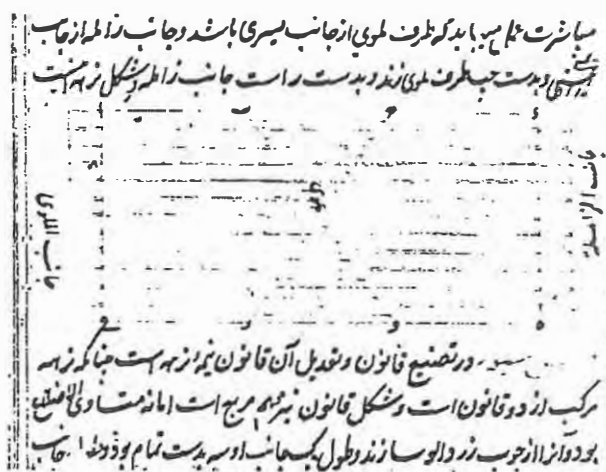 مباشرت عمل میباید که طرف ملوی از جانب یسری باشد و جانب زامله از جانب
یمنی و بدست چپ طرف ملوی زند و بدست راست جانب زامله و شکل نزهه اینست
جانب الزامله
جانب الملوی
در تصنیع قانون و تعدیل آن قانون نیم نزهه است چنانکه نزهه
مرکب از دو قانون است و شکل قانون نیز هم مربع است اما نه متساوی الاضلاع
بود و آنرا از چوب زردالو سازند و طول یکجانب او سه بدست تمام بود و جانب